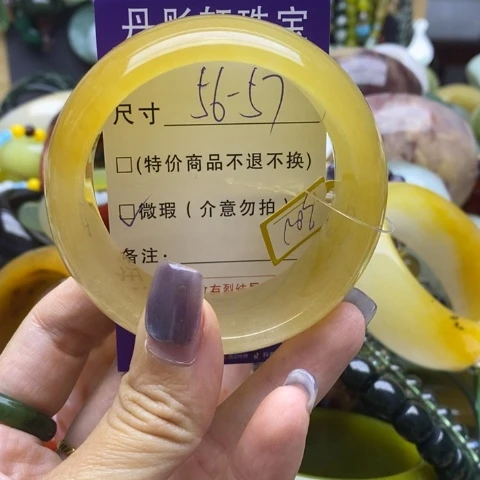 丹彤轩珠宝
尺寸 56-57
□(特价商品不退不换)
☑微瑕(介意勿拍)
备注: